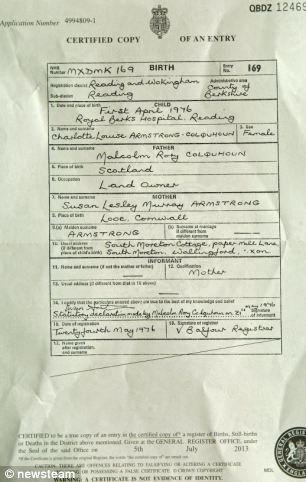 QBDZ 12469
Application Number 4994809-1
CERTIFIED COPY OF AN ENTRY
NHS Number MXDMK 169 BIRTH Entry No. 169
Registration district Reading and Wokingham Administrative area
Sub-district Reading County of Berkshire
1. Date and place of birth CHILD
First April 1976
Royal Berks Hospital, Reading
2. Name and surname 3. Sex
Charlotte Louise ARMSTRONG-COLQUHOUN Female
4. Name and surname FATHER
Malcolm Roy COLQUHOUN
5. Place of birth
Scotland
6. Occupation
Land Owner
7. Name and surname MOTHER
Susan Lesley Murray ARMSTRONG
8. Place of birth
Looe, Cornwall
9.(a) Maiden surname (b) Surname at marriage if different from maiden surname
ARMSTRONG
10. Usual address (if different from place of child's birth) South Moreton Cottage, paper mill Lane,
South Moreton, Wallingford, Oxon
INFORMANT
11. Name and surname (if not the mother or father) 12. Qualification
Mother
13. Usual address (if different from that in 10 above)
14. I certify that the particulars entered above are true to the best of my knowledge and belief
Statutory declaration made by Malcolm Roy Colquhoun on 21st May 1976
Signature of informant
15. Date of registration 16. Signature of registrar
Twentyfourth May 1976 V Balfour Registrar
17. Name given after registration, and surname
CERTIFIED to be a true copy of an entry in the certified copy of a register of Births, Still-births
or Deaths in the District above mentioned. Given at the GENERAL REGISTER OFFICE, under
the Seal of the said Office on 5th July 2013
CAUTION: THERE ARE OFFENCES RELATING TO FALSIFYING OR ALTERING A CERTIFICATE
OR USING OR POSSESSING A FALSE CERTIFICATE © CROWN COPYRIGHT
WARNING: A CERTIFICATE IS NOT EVIDENCE OF IDENTITY.
© newsteam